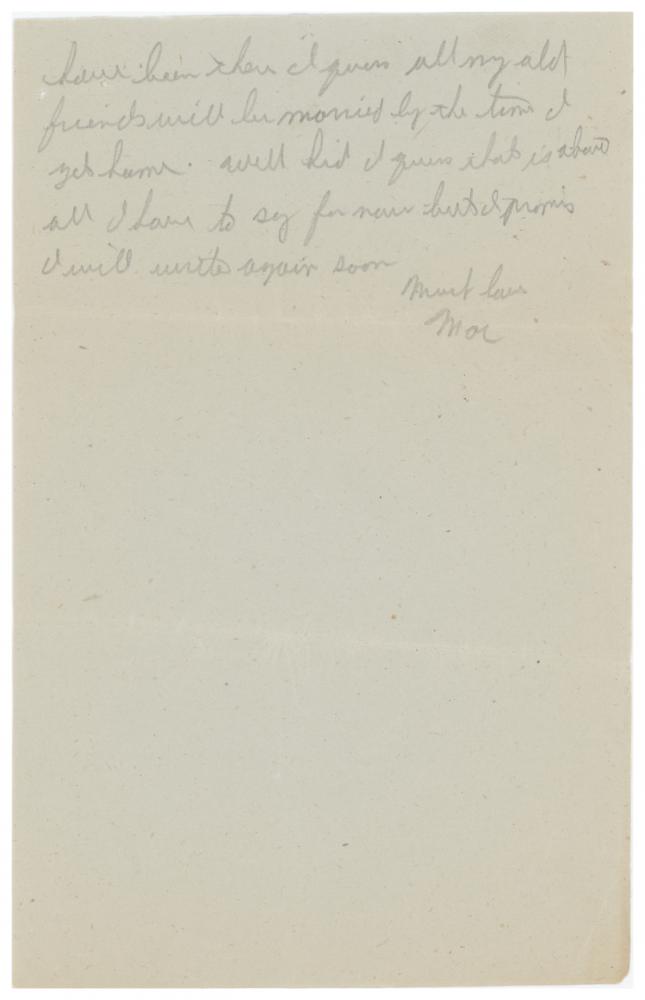 have been there I guess all my old
friends will be married by the time I
get home. Well kid I guess that is about
all I have to say for now but I promis
I will write again soon
Much love
Mac